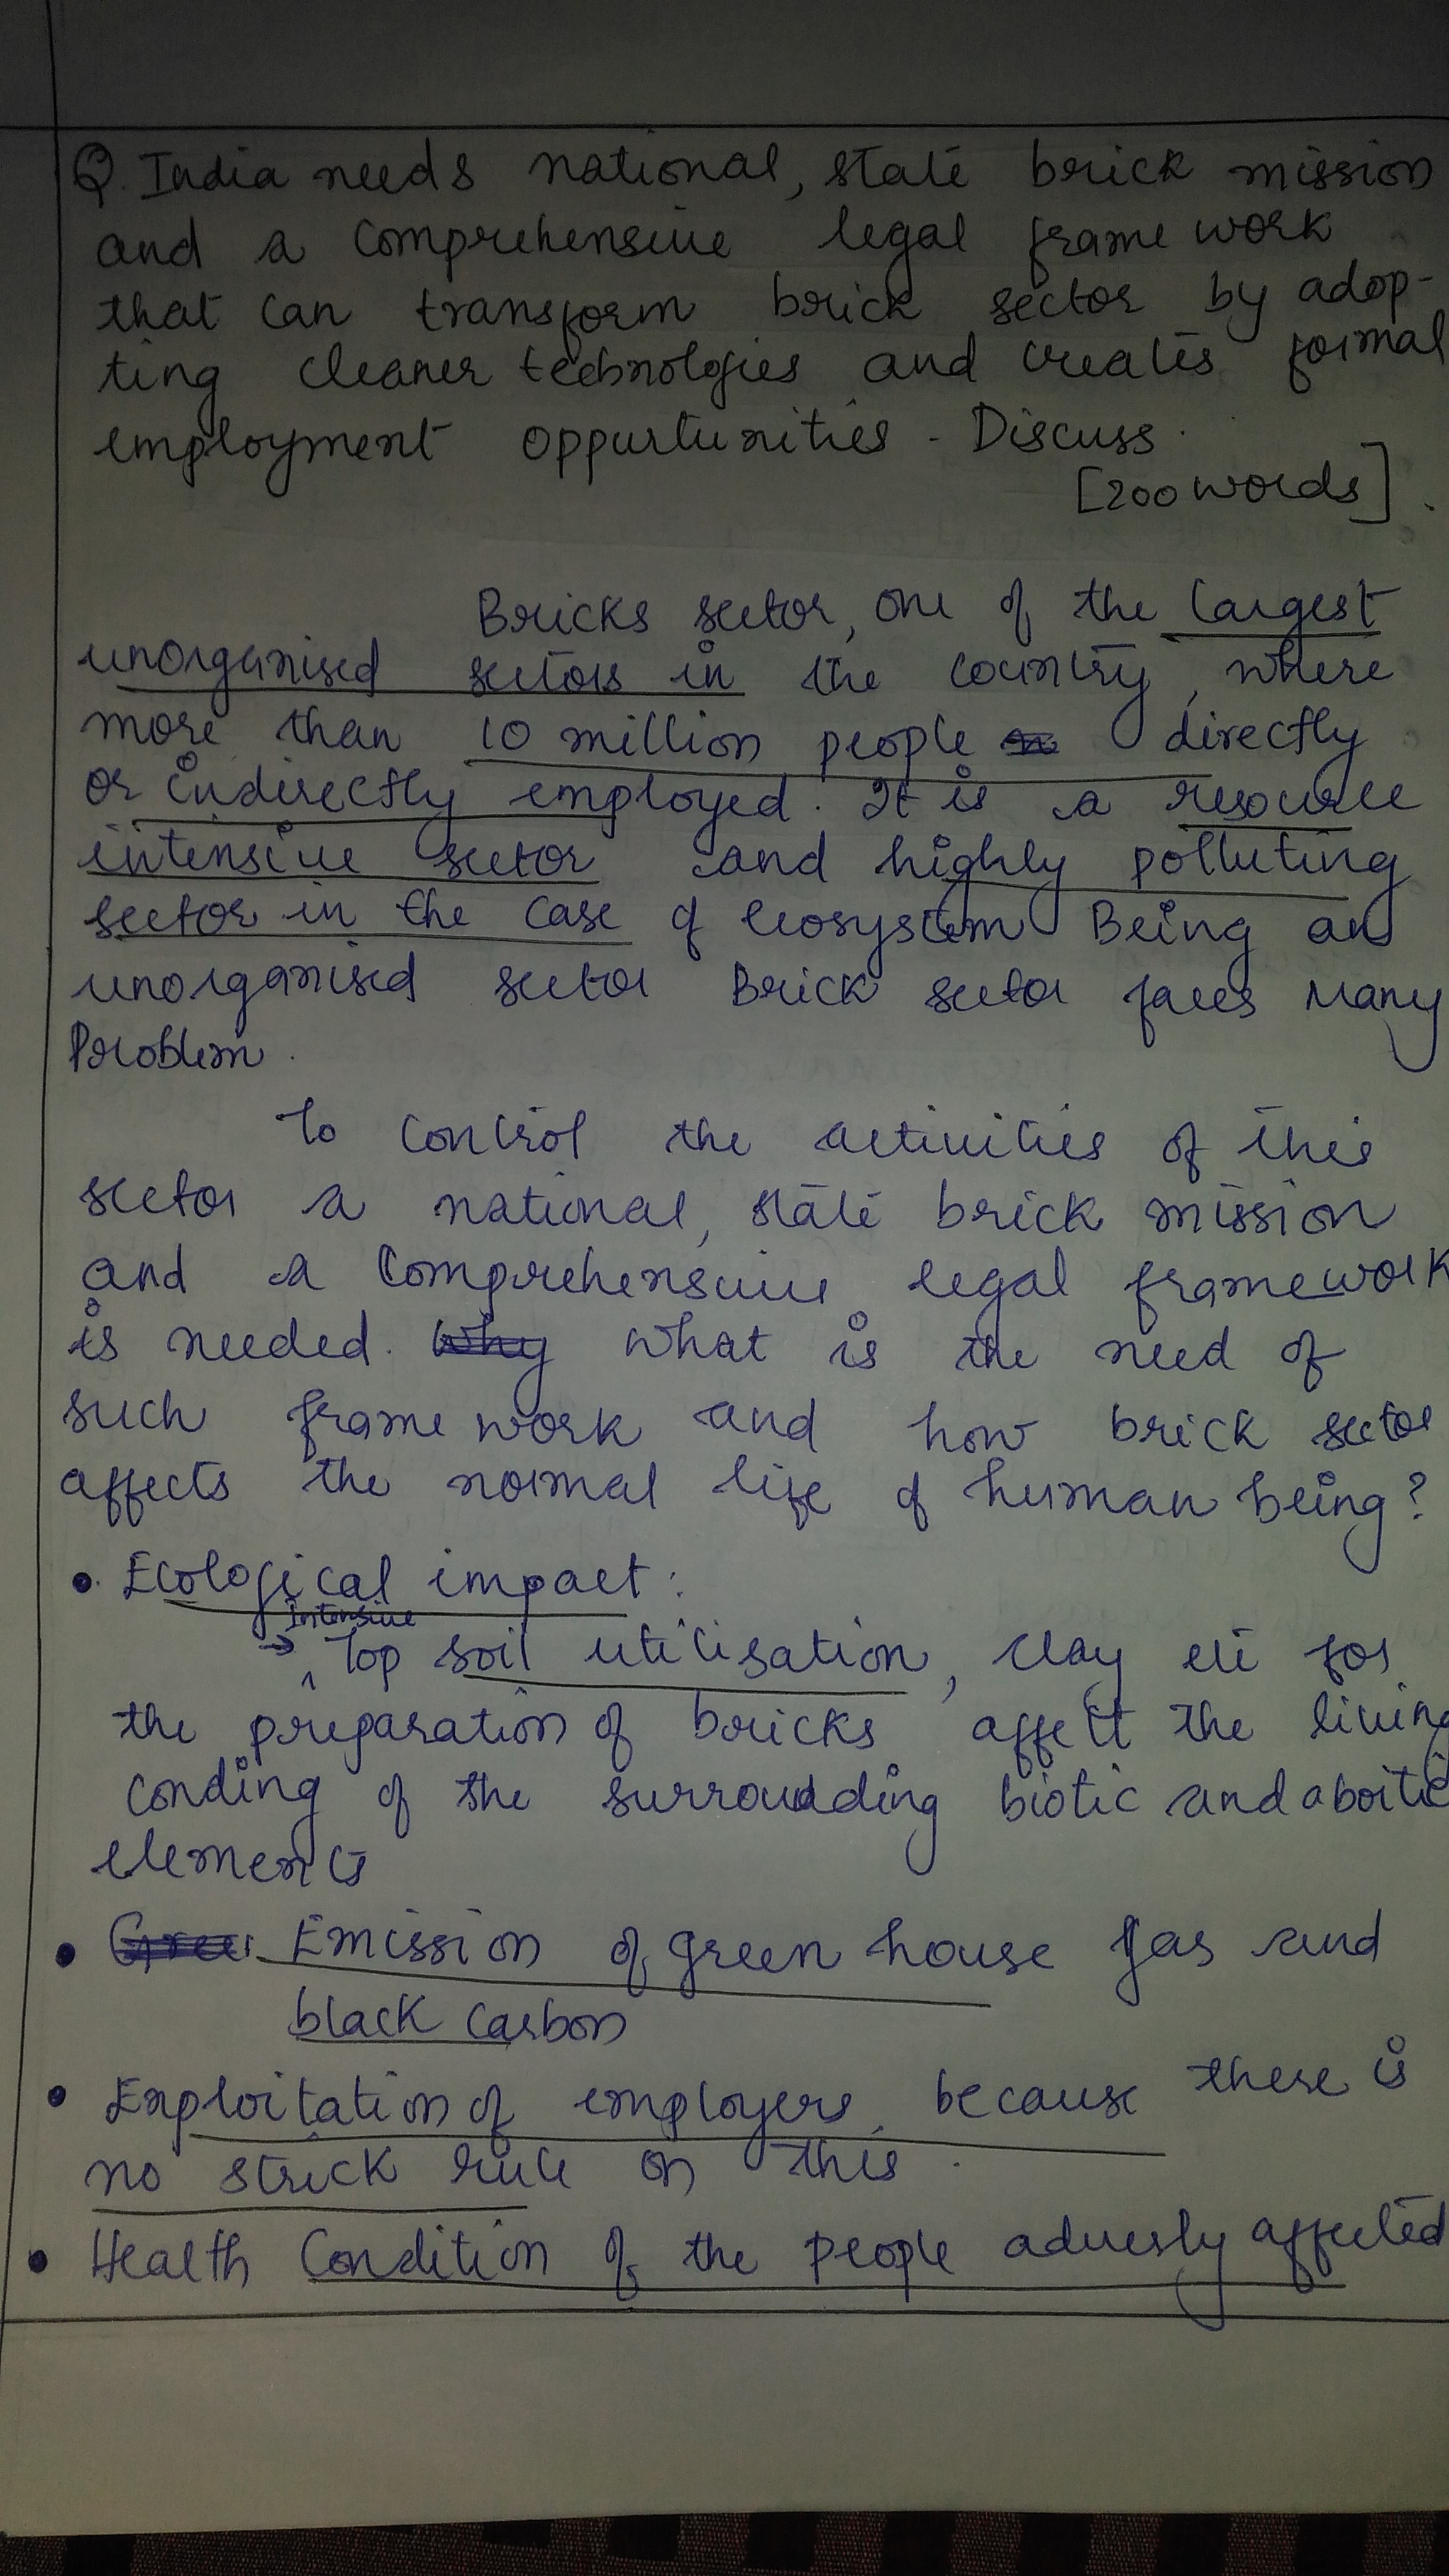 Q. India needs national, state brick mission
and a comprehensive legal frame work
that can transform brick sector by adop-
ting cleaner technologies and creates formal
employment oppurtunities - Discuss.
[200 words].
Bricks sector, one of the largest
unorganised sectors in the country, where
more than 10 million people directly
or indirectly employed. It is a resource
intensive sector and highly polluting
sector in the case of ecosystem Being an
unorganised sector Brick sector faces Many
Problem.
To control the activities of this
sector a national, state brick mission
and a comprehensive legal framework
is needed. Why what is the need of
such frame work and how brick sector
affects the normal life of human being?
• Ecological impact:
→ Intensive Top soil utilisation, clay etc for
the preparation of bricks affect the living
conding of the surroudding biotic and aboitic
elements
• Gree Emission of green house gas and
black carbon
• Exploitation of employers, because there is
no strick rule on this.
• Health Condition of the people adversly affected